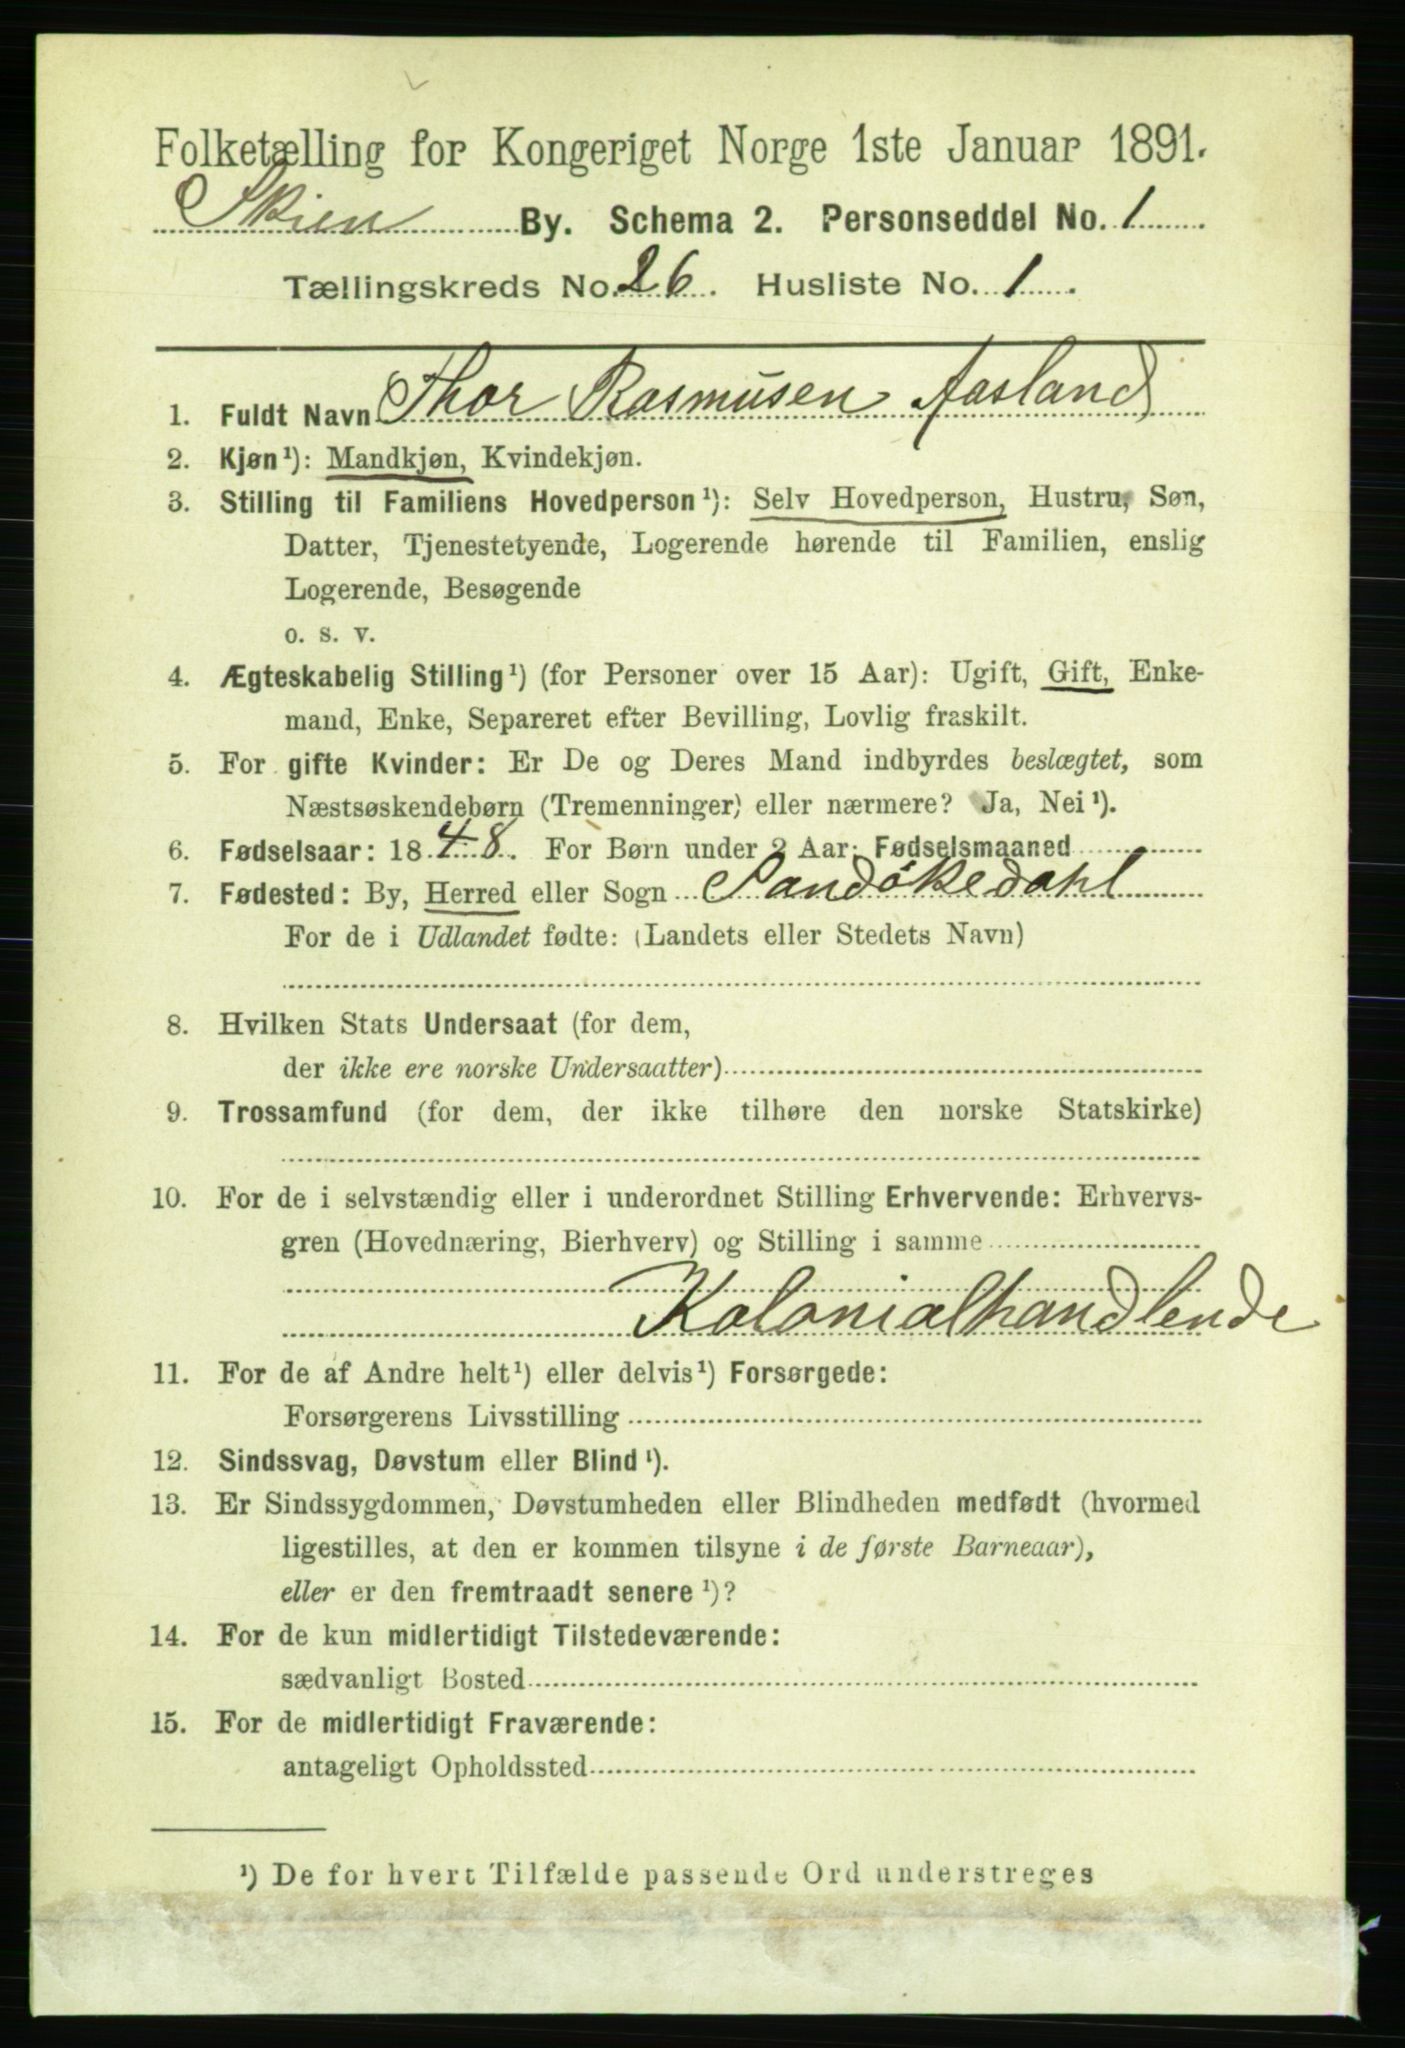 Folketælling for Kongeriget Norge 1ste Januar 1891.
Skien By. Schema 2. Personseddel No. 1
Tællingskreds No. 26. Husliste No. 1.
1. Fuldt Navn Thor Rasmusen Aasland
2. Kjøn¹): Mandkjøn, Kvindekjøn.
3. Stilling til Familiens Hovedperson¹): Selv Hovedperson, Hustru, Søn,
Datter, Tjenestetyende, Logerende hørende til Familien, enslig
Logerende, Besøgende
o. s. v.
4. Ægteskabelig Stilling¹) (for Personer over 15 Aar): Ugift, Gift, Enke-
mand, Enke, Separeret efter Bevilling, Lovlig fraskilt.
5. For gifte Kvinder: Er De og Deres Mand indbyrdes beslægtet, som
Næstsøskendebørn (Tremenninger) eller nærmere? Ja, Nei¹).
6. Fødselsaar: 1848. For Børn under 2 Aar: Fødselsmaaned
7. Fødested: By, Herred eller Sogn Sandökedahl
For de i Udlandet fødte: (Landets eller Stedets Navn)
8. Hvilken Stats Undersaat (for dem,
der ikke ere norske Undersaatter)
9. Trossamfund (for dem, der ikke tilhøre den norske Statskirke)
10. For de i selvstændig eller i underordnet Stilling Erhvervende: Erhvervs-
gren (Hovednæring, Bierhverv) og Stilling i samme
Kolonialhandlende
11. For de af Andre helt¹) eller delvis¹) Forsørgede:
Forsørgerens Livsstilling
12. Sindssvag, Døvstum eller Blind¹).
13. Er Sindssygdommen, Døvstumheden eller Blindheden medfødt (hvormed
ligestilles, at den er kommen tilsyne i de første Barneaar),
eller er den fremtraadt senere¹)?
14. For de kun midlertidigt Tilstedeværende:
sædvanligt Bosted
15. For de midlertidigt Fraværende:
antageligt Opholdssted
¹) De for hvert Tilfælde passende Ord understreges